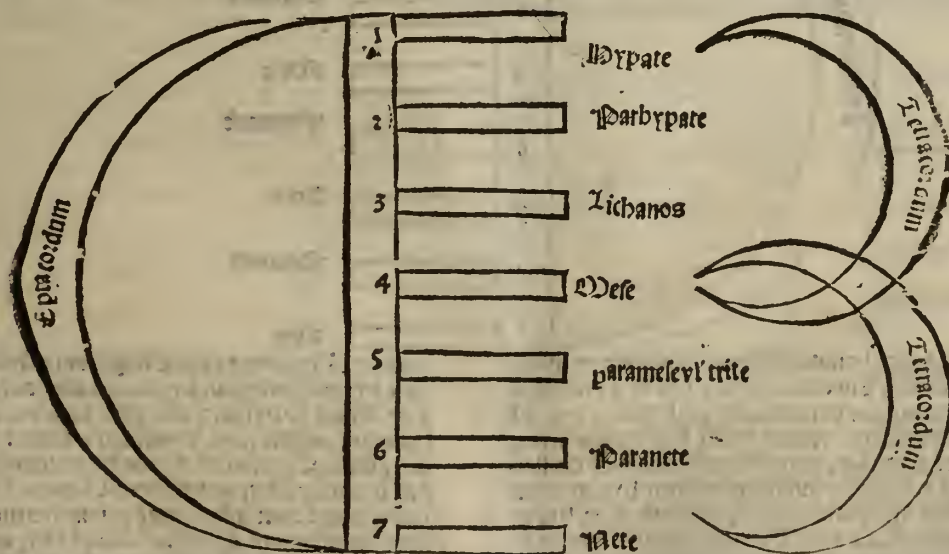 Eptacordum
1 Hypate
2 Parhypate
3 Lichanos
4 Mese
5 paramese vl' trite
6 Paranete
7 Nete
Tetracordum
Tetracordum